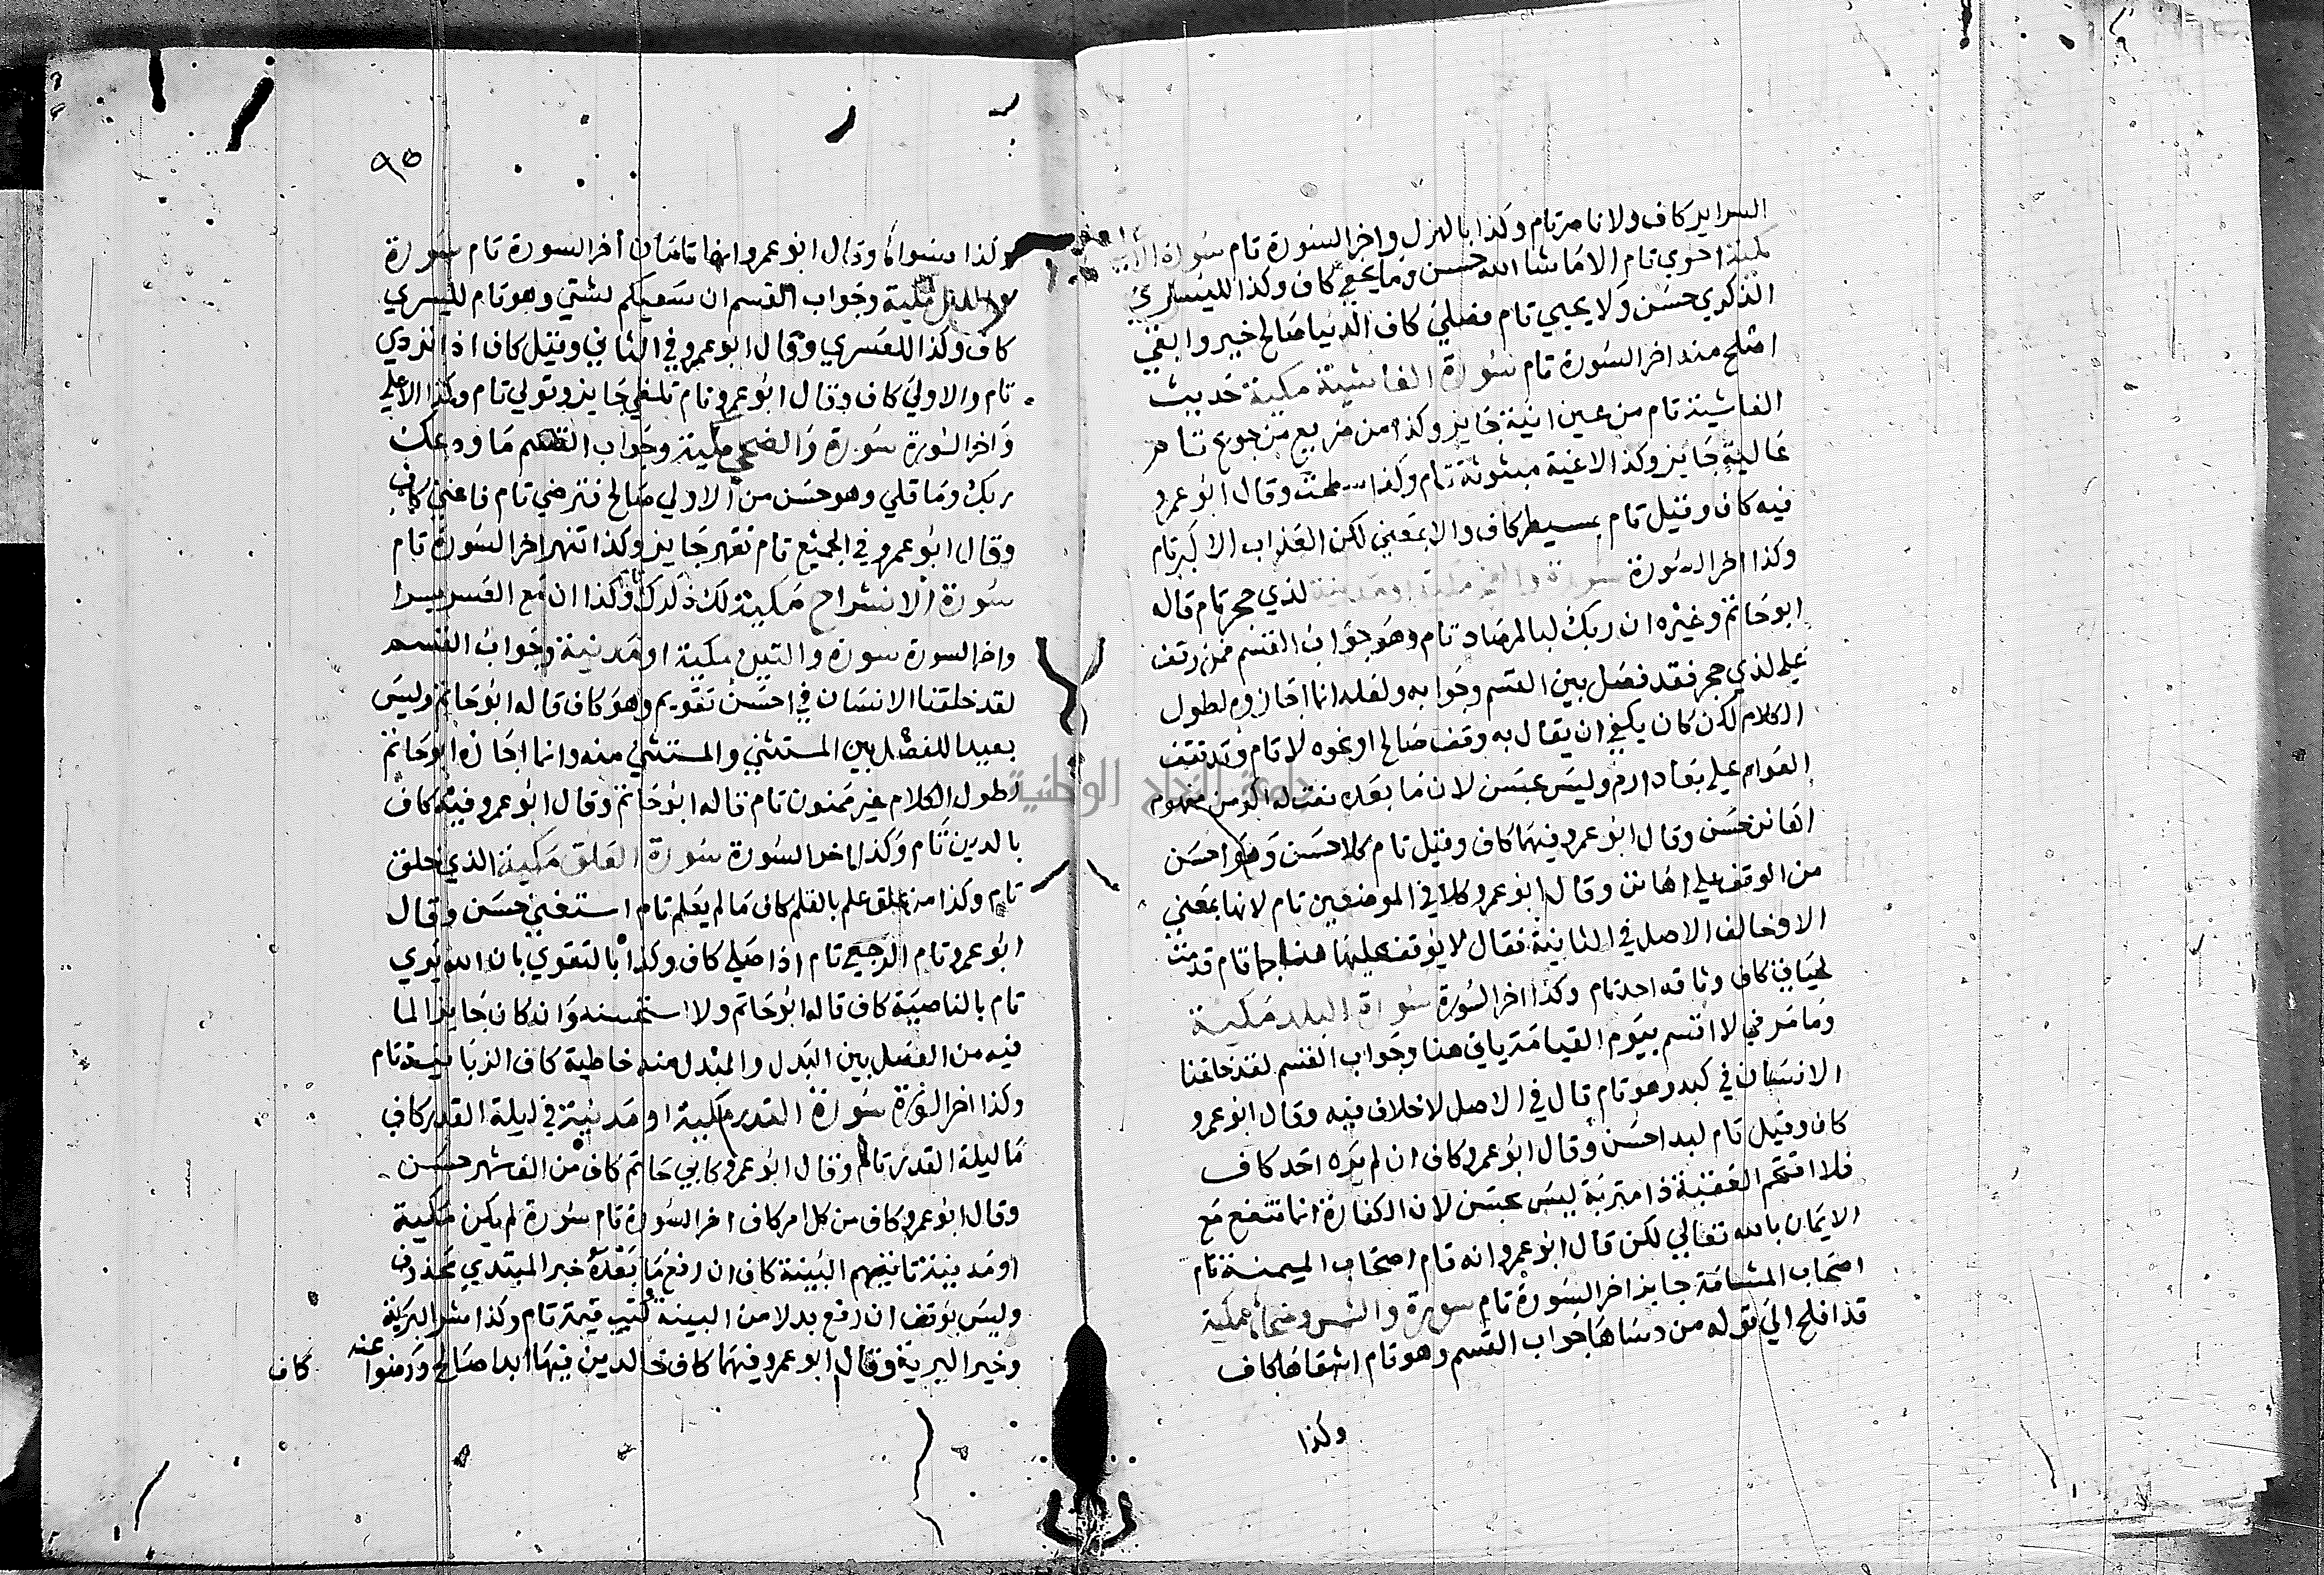 السراير كاف ولا ناصر تام وكذا بالهزل واخر السورة تام سورة الاعلي
مكية احوي تام الا ما شا الله حسن وما يخفي كاف وكذا لليسري
الذكري حسن ولا يحيي تام فصلي كاف الدنيا صالح خير وابقي
اصلح منه اخر السورة تام سورة الغاشية مكية حديث
الغاشية تام من عين انية جايز وكذا من ضريع من جوع تام
عالية جايز وكذا لاغية مبثوثة تام وكذا سطحت وقال ابو عمرو
فيه كاف وقيل تام بمسيطر كاف والا بمعني لكن العذاب الاكبر تام
وكذا اخر السورة سورة والفجر مكية او مدنية لذي حجر تام قاله
ابو حاتم وغيره ان ربك لبالمرصاد تام وهو جواب القسم فمن وقف
علي لذي حجر فقد فصل بين القسم وجوابه ولعله انما اجازوه لطول
الكلام لكن كان يكفي ان يقال به وقف صالح او نحوه لا تام وقد تقف
العوام علي بعاد ارم وليس بحسن لان ما بعده نعت له اكرمن مفهوم
اهانن حسن وقال ابو عمرو فيهما كاف وقيل تام كلا حسن وهو احسن
من الوقف علي اهانن وقال ابو عمرو كلا في الموضعين تام لانها بمعني
الا وخالف الاصل في الثانية فقال لا يوقف عليها هنا جما تام قدمت
لحياتي كاف وثاقه احد تام وكذا اخر السورة سورة البلد مكية
وما مر في لا اقسم بيوم القيامة ياتي هنا وجواب القسم لقد خلقنا
الانسان في كبد وهو تام قال في الاصل لا خلاف فيه وقال ابو عمرو
كاف وقيل تام لبدا حسن وقال ابو عمرو كاف ان لم يره احد كاف
فلا اقتحم العقبة ذا متربة ليس بحسن لان الكفارة انما تنفع مع
الايمان بالله تعالي لكن قال ابو عمرو انه تام اصحاب الميمنة تام
اصحاب المشامة جايز اخر السورة تام سورة والشمس وضحاها مكية
قد افلح الي قوله من دساها جواب القسم وهو تام اشقاها كاف
وكذا
٩٥
وكذا فسواها وقال ابو عمرو انها تامتان اخر السورة تام سورة
والليل مكية وجواب القسم ان سعيكم لشتي وهو تام لليسري
كاف وكذا للعسري وقال ابو عمرو في الثاني وقيل كاف اذا تردي
تام والاولي كاف وقال ابو عمرو تام تلظي جايز وتولي تام وكذا الاعلي
واخر السورة سورة والضحي مكية وجواب القسم ما ودعك
ربك وما قلي وهو حسن من الاولي صالح فترضي تام فاغني كاف
وقال ابو عمرو في الجميع تام تقهر جايز وكذا تنهر اخر السورة تام
سورة الانشراح مكية لك ذكرك وكذا ان مع العسر يسرا
واخر السورة سورة والتين مكية او مدنية وجواب القسم
لقد خلقنا الانسان في احسن تقويم وهو كاف قاله ابو حاتم وليس
بعيدا للفصل بين المستثني والمستثني منه وانما اجازه ابو حاتم
لطول الكلام غير ممنون تام قاله ابو حاتم وقال ابو عمرو فيه كاف
بالدين تام وكذا اخر السورة سورة العلق مكية الذي خلق
تام وكذا من علق علم بالقلم كاف ما لم يعلم تام استغني حسن وقال
ابو عمرو تام الرجعي تام اذا صلي كاف وكذا بالتقوي بان الله يري
تام بالناصية كاف قاله ابو حاتم ولا استحسنه وان كان جايزا لما
فيه من الفصل بين البدل والمبدل منه خاطية كاف الزبانية تام
وكذا اخر السورة سورة القدر مكية او مدنية في ليلة القدر كافي
ما ليلة القدر تام وقال ابو عمرو كابي حاتم كاف من الف شهر حسن
وقال ابو عمرو كاف من كل امر كاف اخر السورة تام سورة لم يكن مكية
او مدنية تاتيهم البينة كاف ان رفع ما بعده خبر المبتدي محذوف
وليس بوقف ان رفع بدلا من البينة كتب قيمة تام وكذا شر البرية
وخير البرية وقال ابو عمرو فيهما كاف خالدين فيها ابدا صالح ورضوا عنه
كاف
جامعة النجاح الوطنية